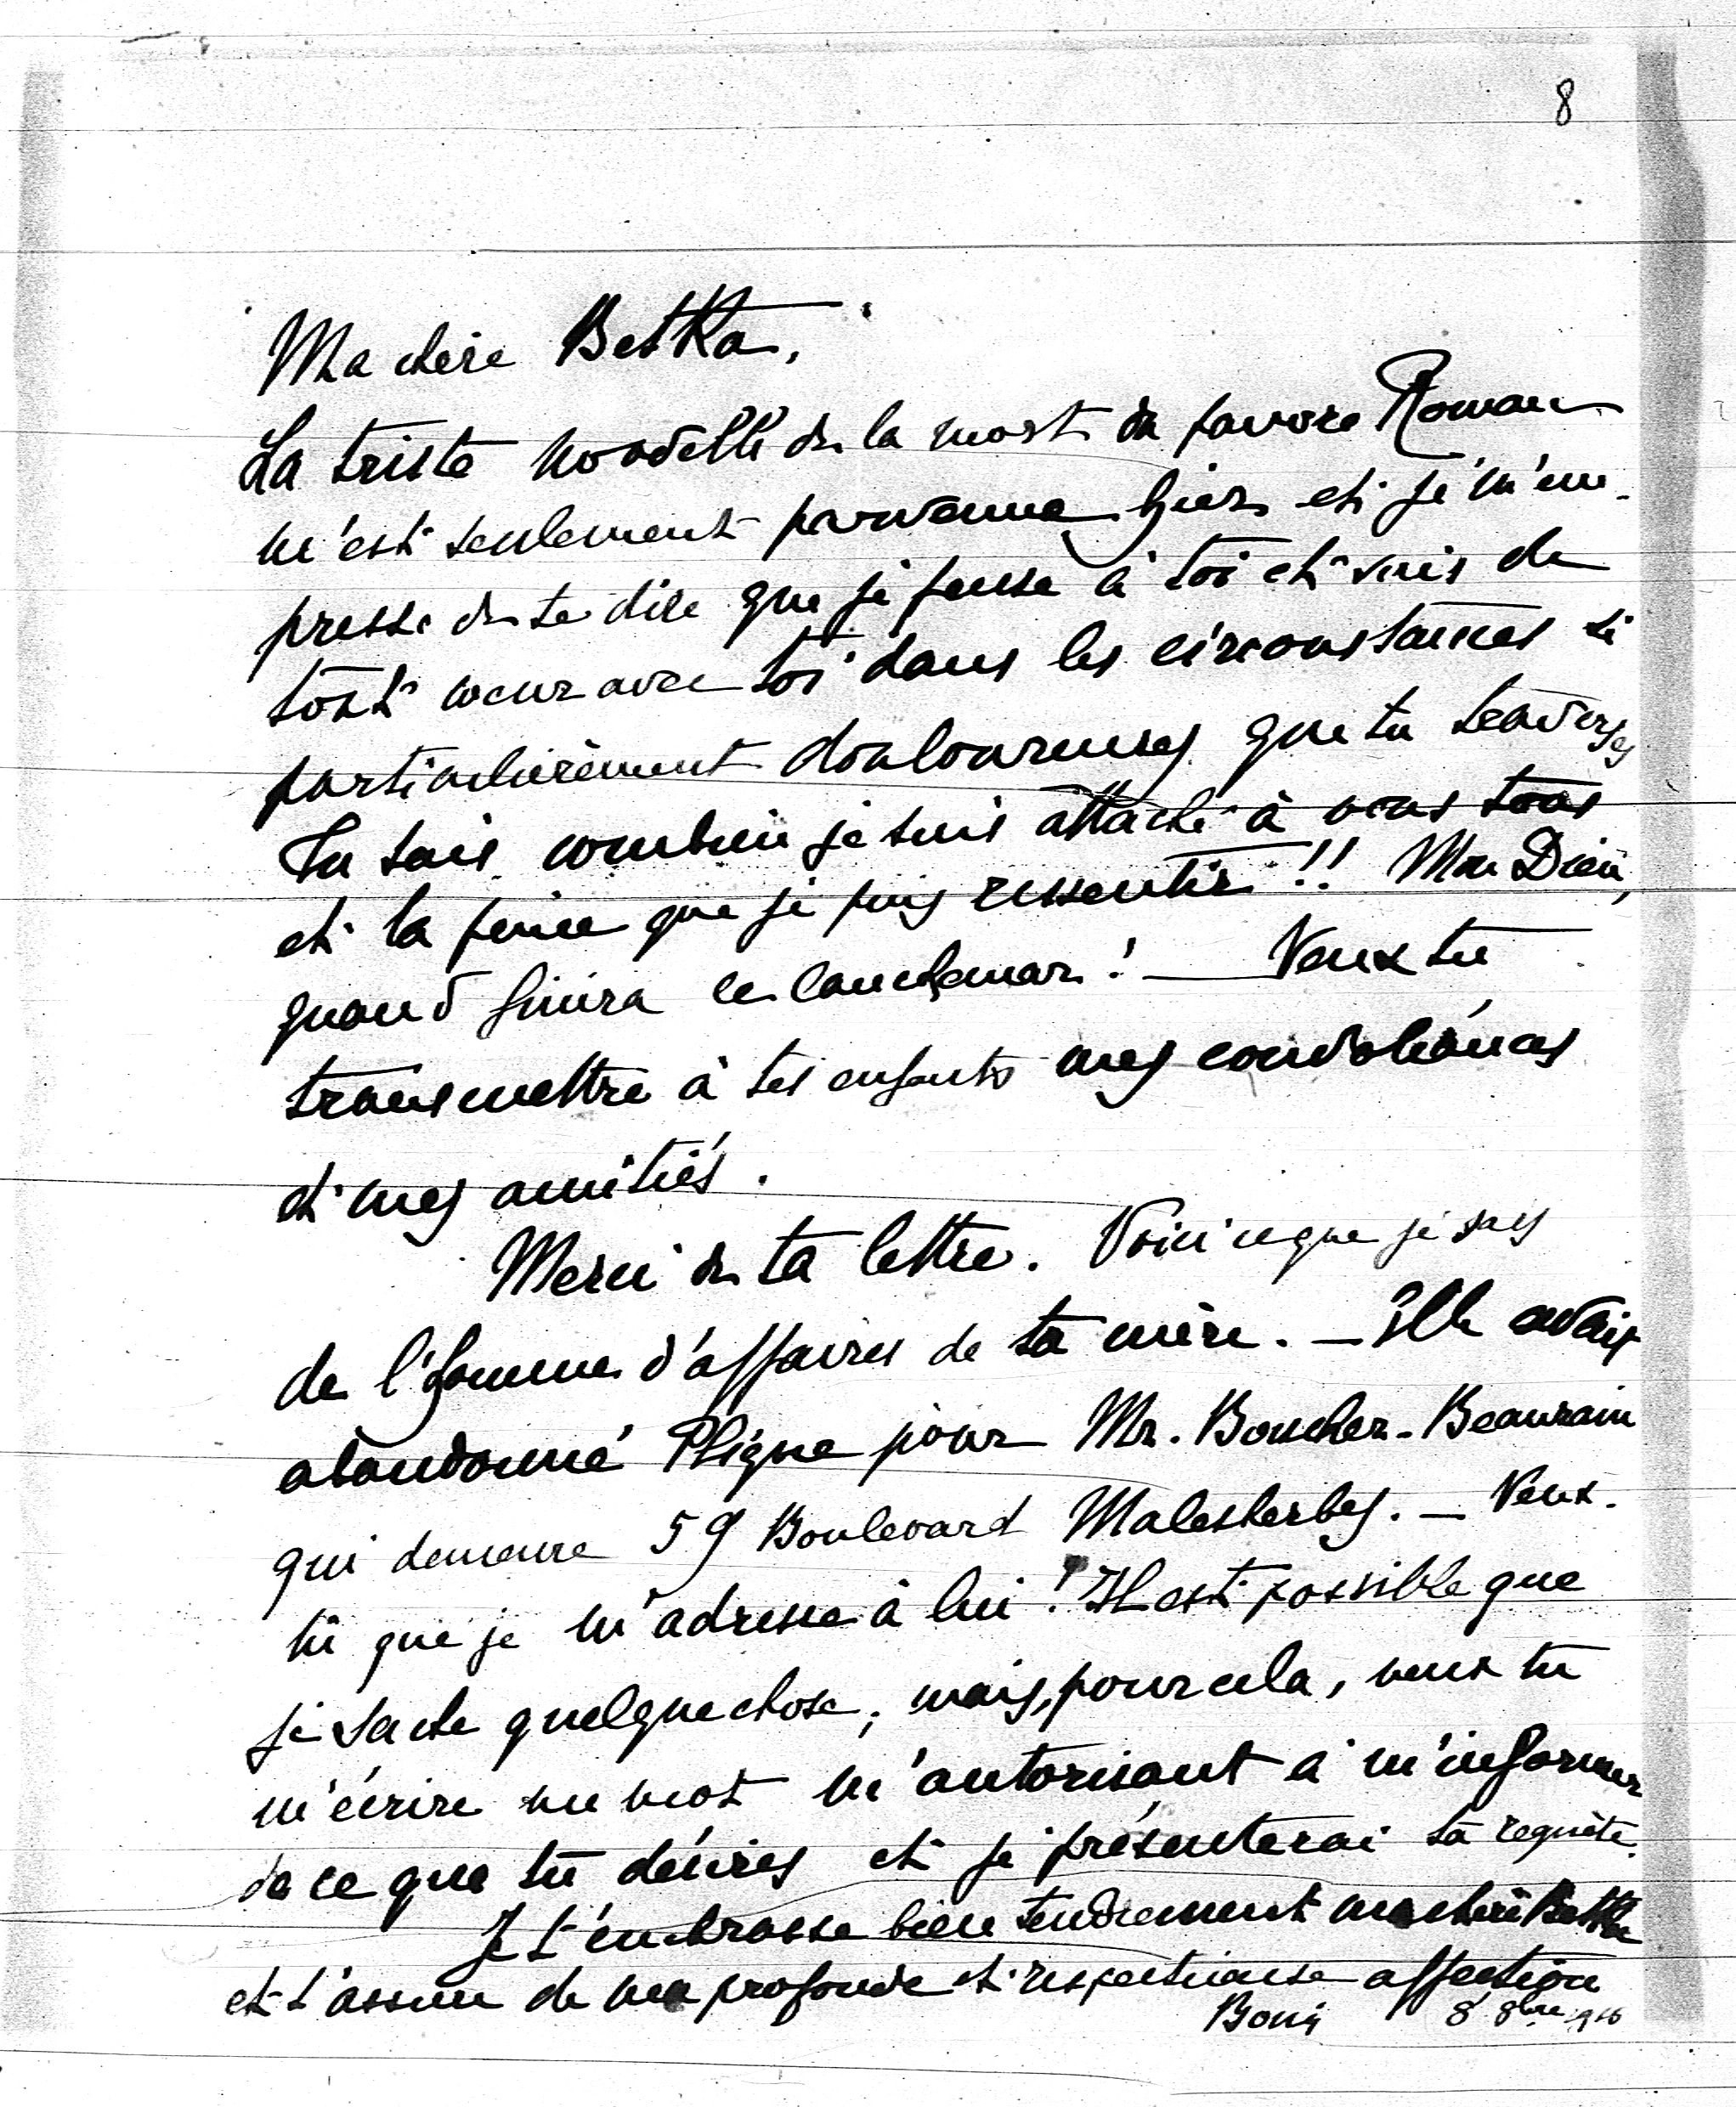 8
Ma chère Betka,
La triste nouvelle de la mort du pauvre Roman
m'est seulement parvenue hier et je m'em-
presse de te dire que je pense à toi et suis de
tout coeur avec toi dans les circonstances si
particulièrement douloureuses que tu traverses
Tu sais combien je suis attaché à vous tous
et la peine que je puis ressentir !! Mon Dieu,
quand finira ce cauchemar ! — Veux tu
transmettre à tes enfants mes condoléances
et mes amitiés.
Merci de ta lettre. Voici ce que je sais
de l'homme d'affaires de ta mère. — Elle avait
abandonné Pligne pour Mr. Boucher-Beaurain
qui demeure 59 Boulevard Malesherbes. — Veux-
tu que je m'adresse à lui ? Il est possible que
je sache quelque chose, mais, pour cela, veux tu
m'écrire un mot m'autorisant à m'informer
de ce que tu désires et je présenterai ta requête.
Je t'embrasse bien tendrement ma chère Betka
et t'assure de ma profonde et respectueuse affection
Boni 8 8bre 1916